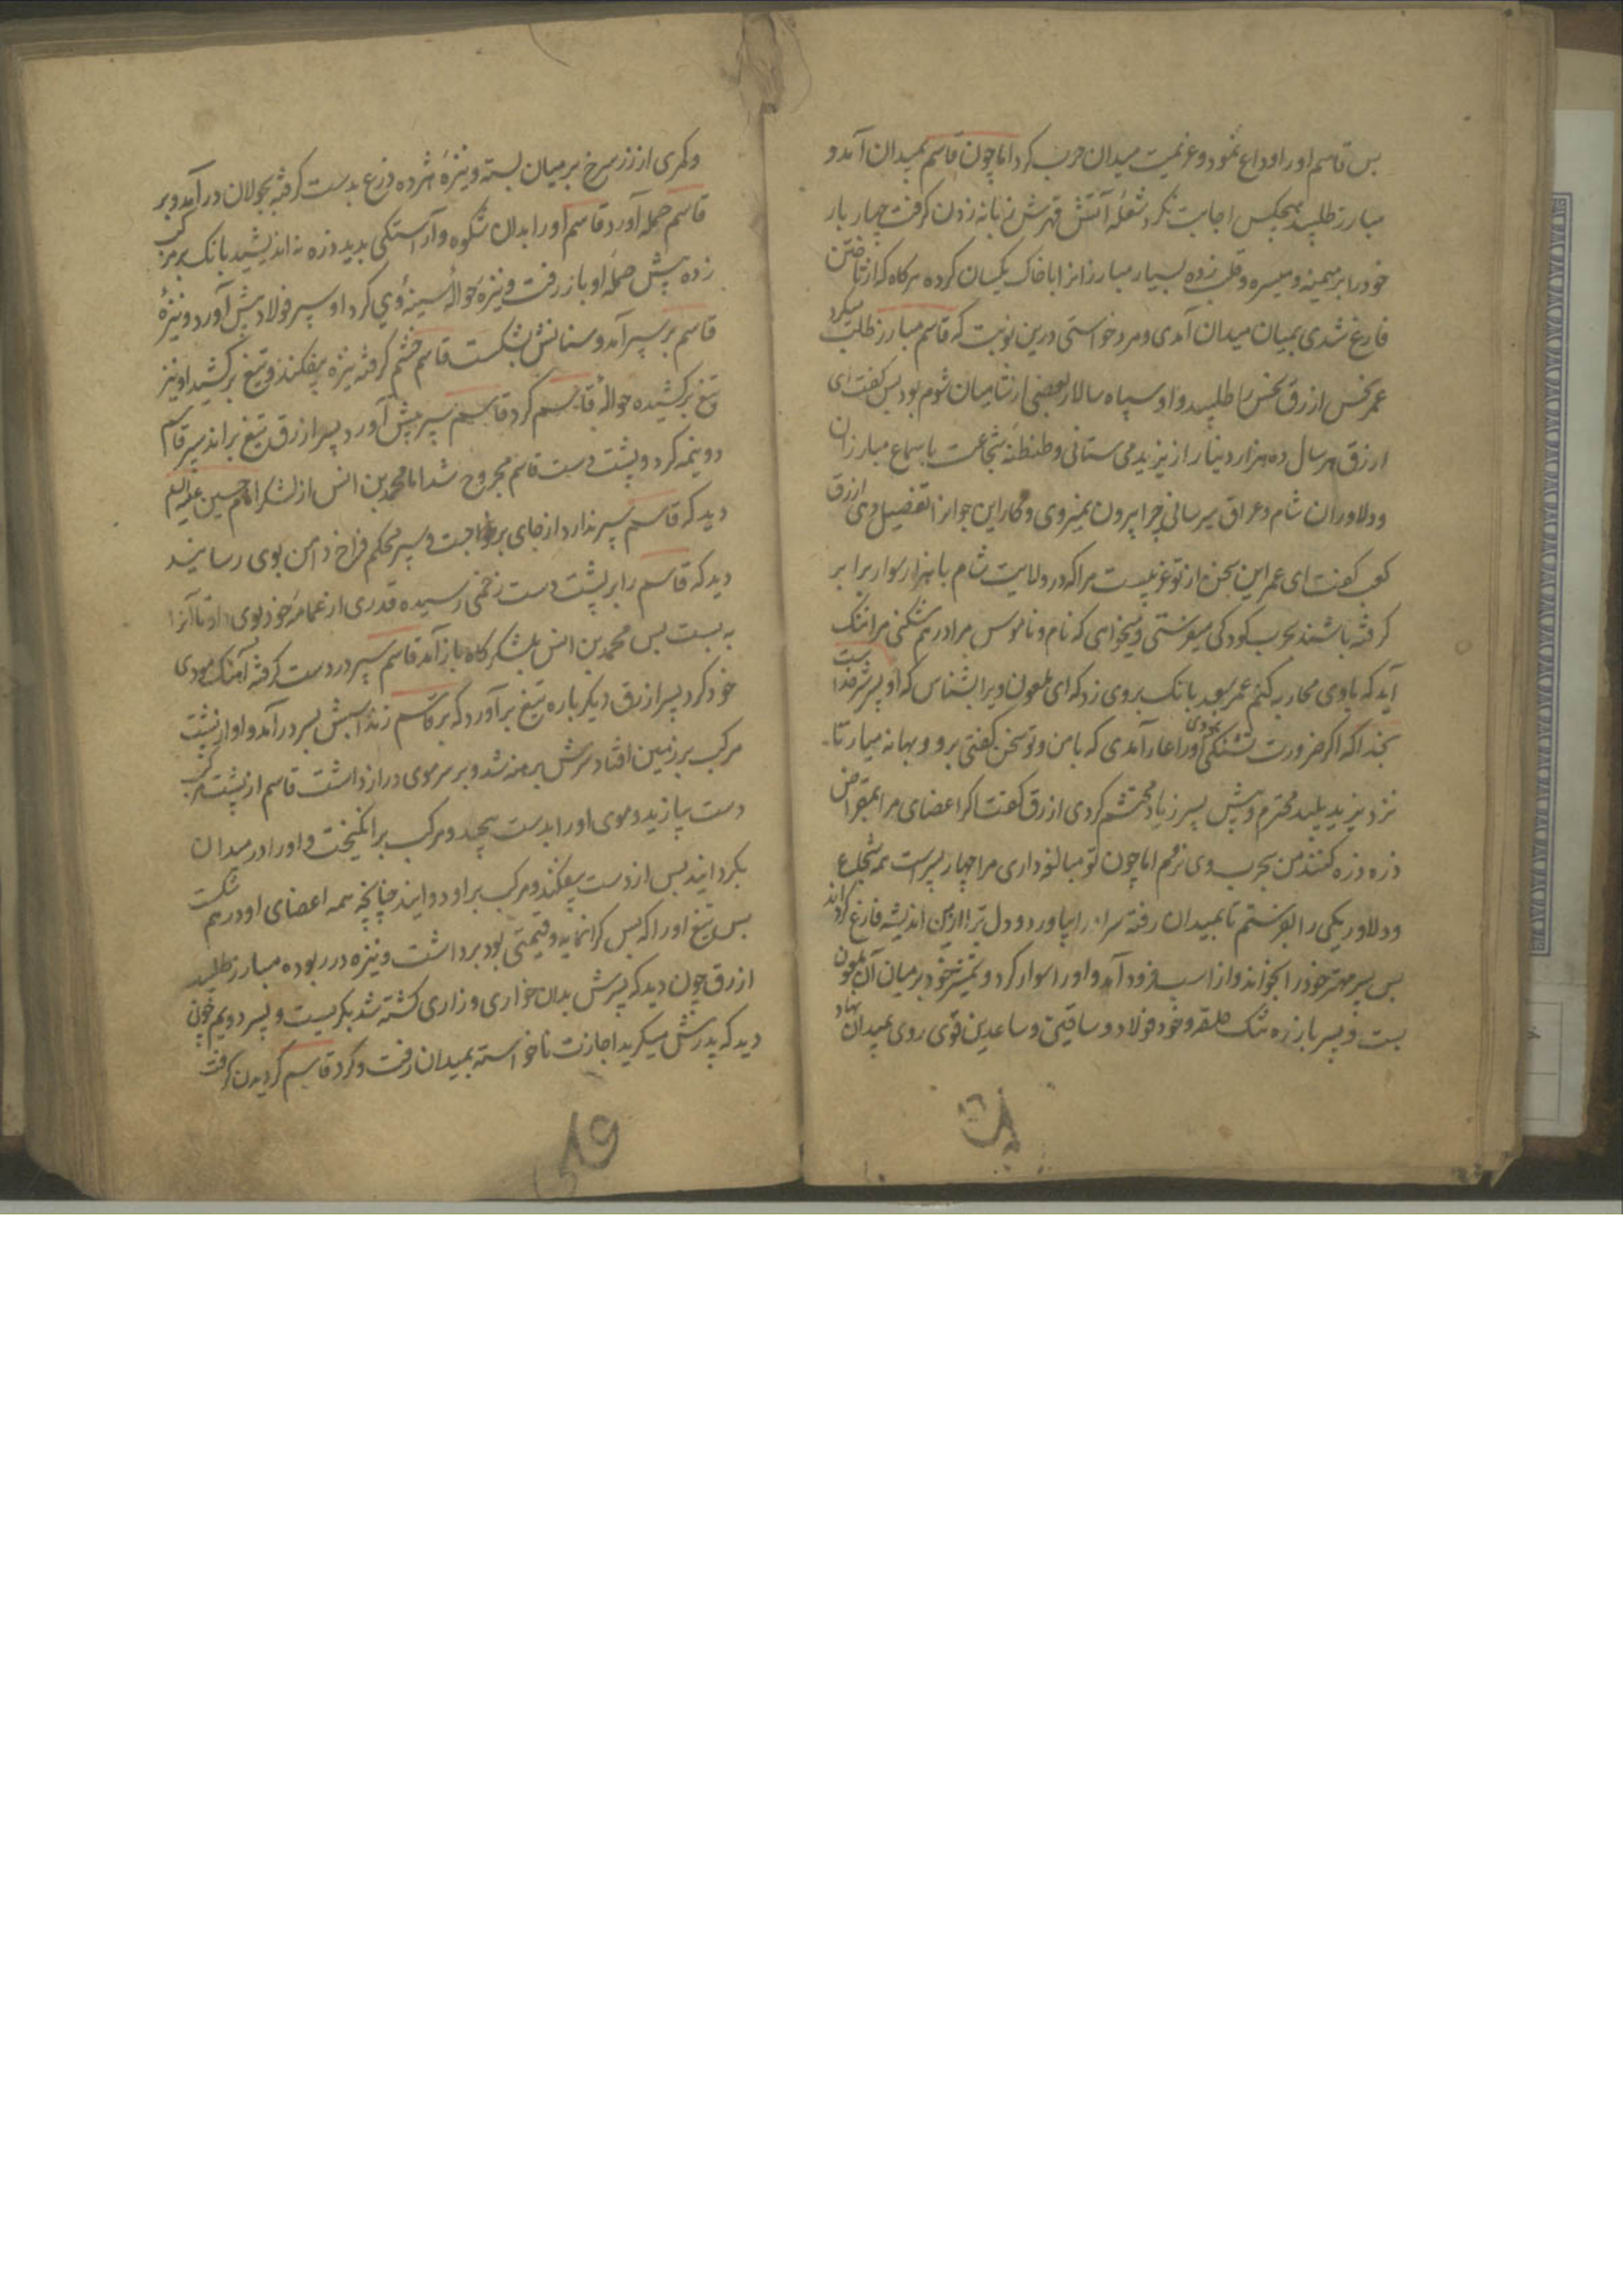 بس قاسم اورا وداع نمود و عزیمت میدان حرب کرد اما چون قاسم بمیدان آمد و
مبارز طلبید هیچکس اجابت نکرد شعلهٔ آتش قهرش زبانه زدن کرفت چهار بار
خود را بر میمنه و میسره و قلب زده بسیار مبارزانرا با خاک یکسان کرده هرکاه که از تاختن
فارغ شدی بمیان میدان آمدی و مرد خواستی درین نوبت که قاسم مبارز طلب میکرد
عمر نحس ازرق نحس را طلبید و او سپاه سالار بعضی از شامیان شوم بود بس کفت ای
ازرق هر سال ده هزار دینار از یزید می ستانی و طنطنهٔ شجاعت باسماع مبارزان
و دلاوران شام و عراق میرسانی چرا بیرون نمیروی و کار این جوانرا تفصیل دهی ازرق
کفت ای عمر این سخن از تو غریبست مرا که در ولایت شام با هزار سوار برابر
کرفته باشند بحرب کودکی میفرستی و میخواهی که نام و ناموس مرا درهم شکنی مرا ننک
آید که با وی محاربه کنم عمر سعد بانک بروی زد که ای ملعون ویرا بشناس که او پسر شیر خداست
بخدا که اکر ضرورت تشنکی نبودی اورا عار آمدی که با من و تو سخن کفتی برو و بهانه میار تا
نزد یزید پلید محترم و پیش پسر زیاد محتشم کردی ازرق کفت اکر اعضای مرا بمقراض
ذره ذره کنند من بحرب وی نروم اما چون تو مبالغه داری مرا چهار پسرست همه شجاع
و دلاور یکی را بفرستم تا بمیدان رفته سر اورا بیاورد و دل ترا ازین اندیشه فارغ کرداند
بس پسر مهتر خود را بخواند و از اسب فرود آمد و اورا سوار کرد و شمشیر خود بر میان آن ملعون
بست و پسر با زره تنک حلقه و خود فولاد و ساقین و ساعدین قوی روی بمیدان نهاد
و کمری از زر سرخ بر میان بسته و نیزهٔ هژده ذرع بدست کرفته بجولان درآمد و بر
قاسم حمله آورد قاسم اورا بدان شکوه و آراستکی بدید ذره نه اندیشید بانک بر مرکب
زده پیش حملهٔ او باز رفت و نیزه حوالهٔ سینهٔ وی کرد او سپر فولاد پیش آورد و نیزهٔ
قاسم بر سپر آمد و سنانش بشکست قاسم خشم کرفته نیزه بیفکند و تیغ برکشید او نیز
تیغ برکشیده حوالهٔ قاسم کرد قاسم سپر پیش آورد پسر ازرق تیغ براند سپر قاسم
دو نیمه کرد و پشت دست قاسم مجروح شد اما محمد بن انس از لشکر امام حسین علیه السلم
دید که قاسم سپر ندارد از جای برون جست و سپر محکم فراخ دامن بوی رسانید
دید که قاسم را بر پشت دست زخمی رسیده قدری از عمامهٔ خود بوی داد تا آنرا
به بست بس محمد بن انس بلشکرکاه باز آمد قاسم سپر در دست کرفته آهنک مودی
خود کرد پسر ازرق دیکر باره تیغ برآورد که بر قاسم زند اسبش بسر درآمد و او از پشت
مرکب بر زمین افتاد سرش برهنه شد و بر سر موی دراز داشت قاسم از پشت مرکب
دست یازید و موی اورا بدست پیچید و مرکب برانکیخت و اورا در میدان
بکردانید بس از دست بیفکند و مرکب بر او دوانید چنانچه همه اعضای او درهم شکست
بس تیغ اورا که بس کرانمایه و قیمتی بود برداشت و نیزه در ربوده مبارز طلبید
ازرق چون دید که پسرش بدان خواری و زاری کشته شد بکریست و پسر دویم چون
دید که پدرش میکرید اجازت ناخواسته بمیدان رفت و کرد قاسم کردیدن کرفت
۸۹